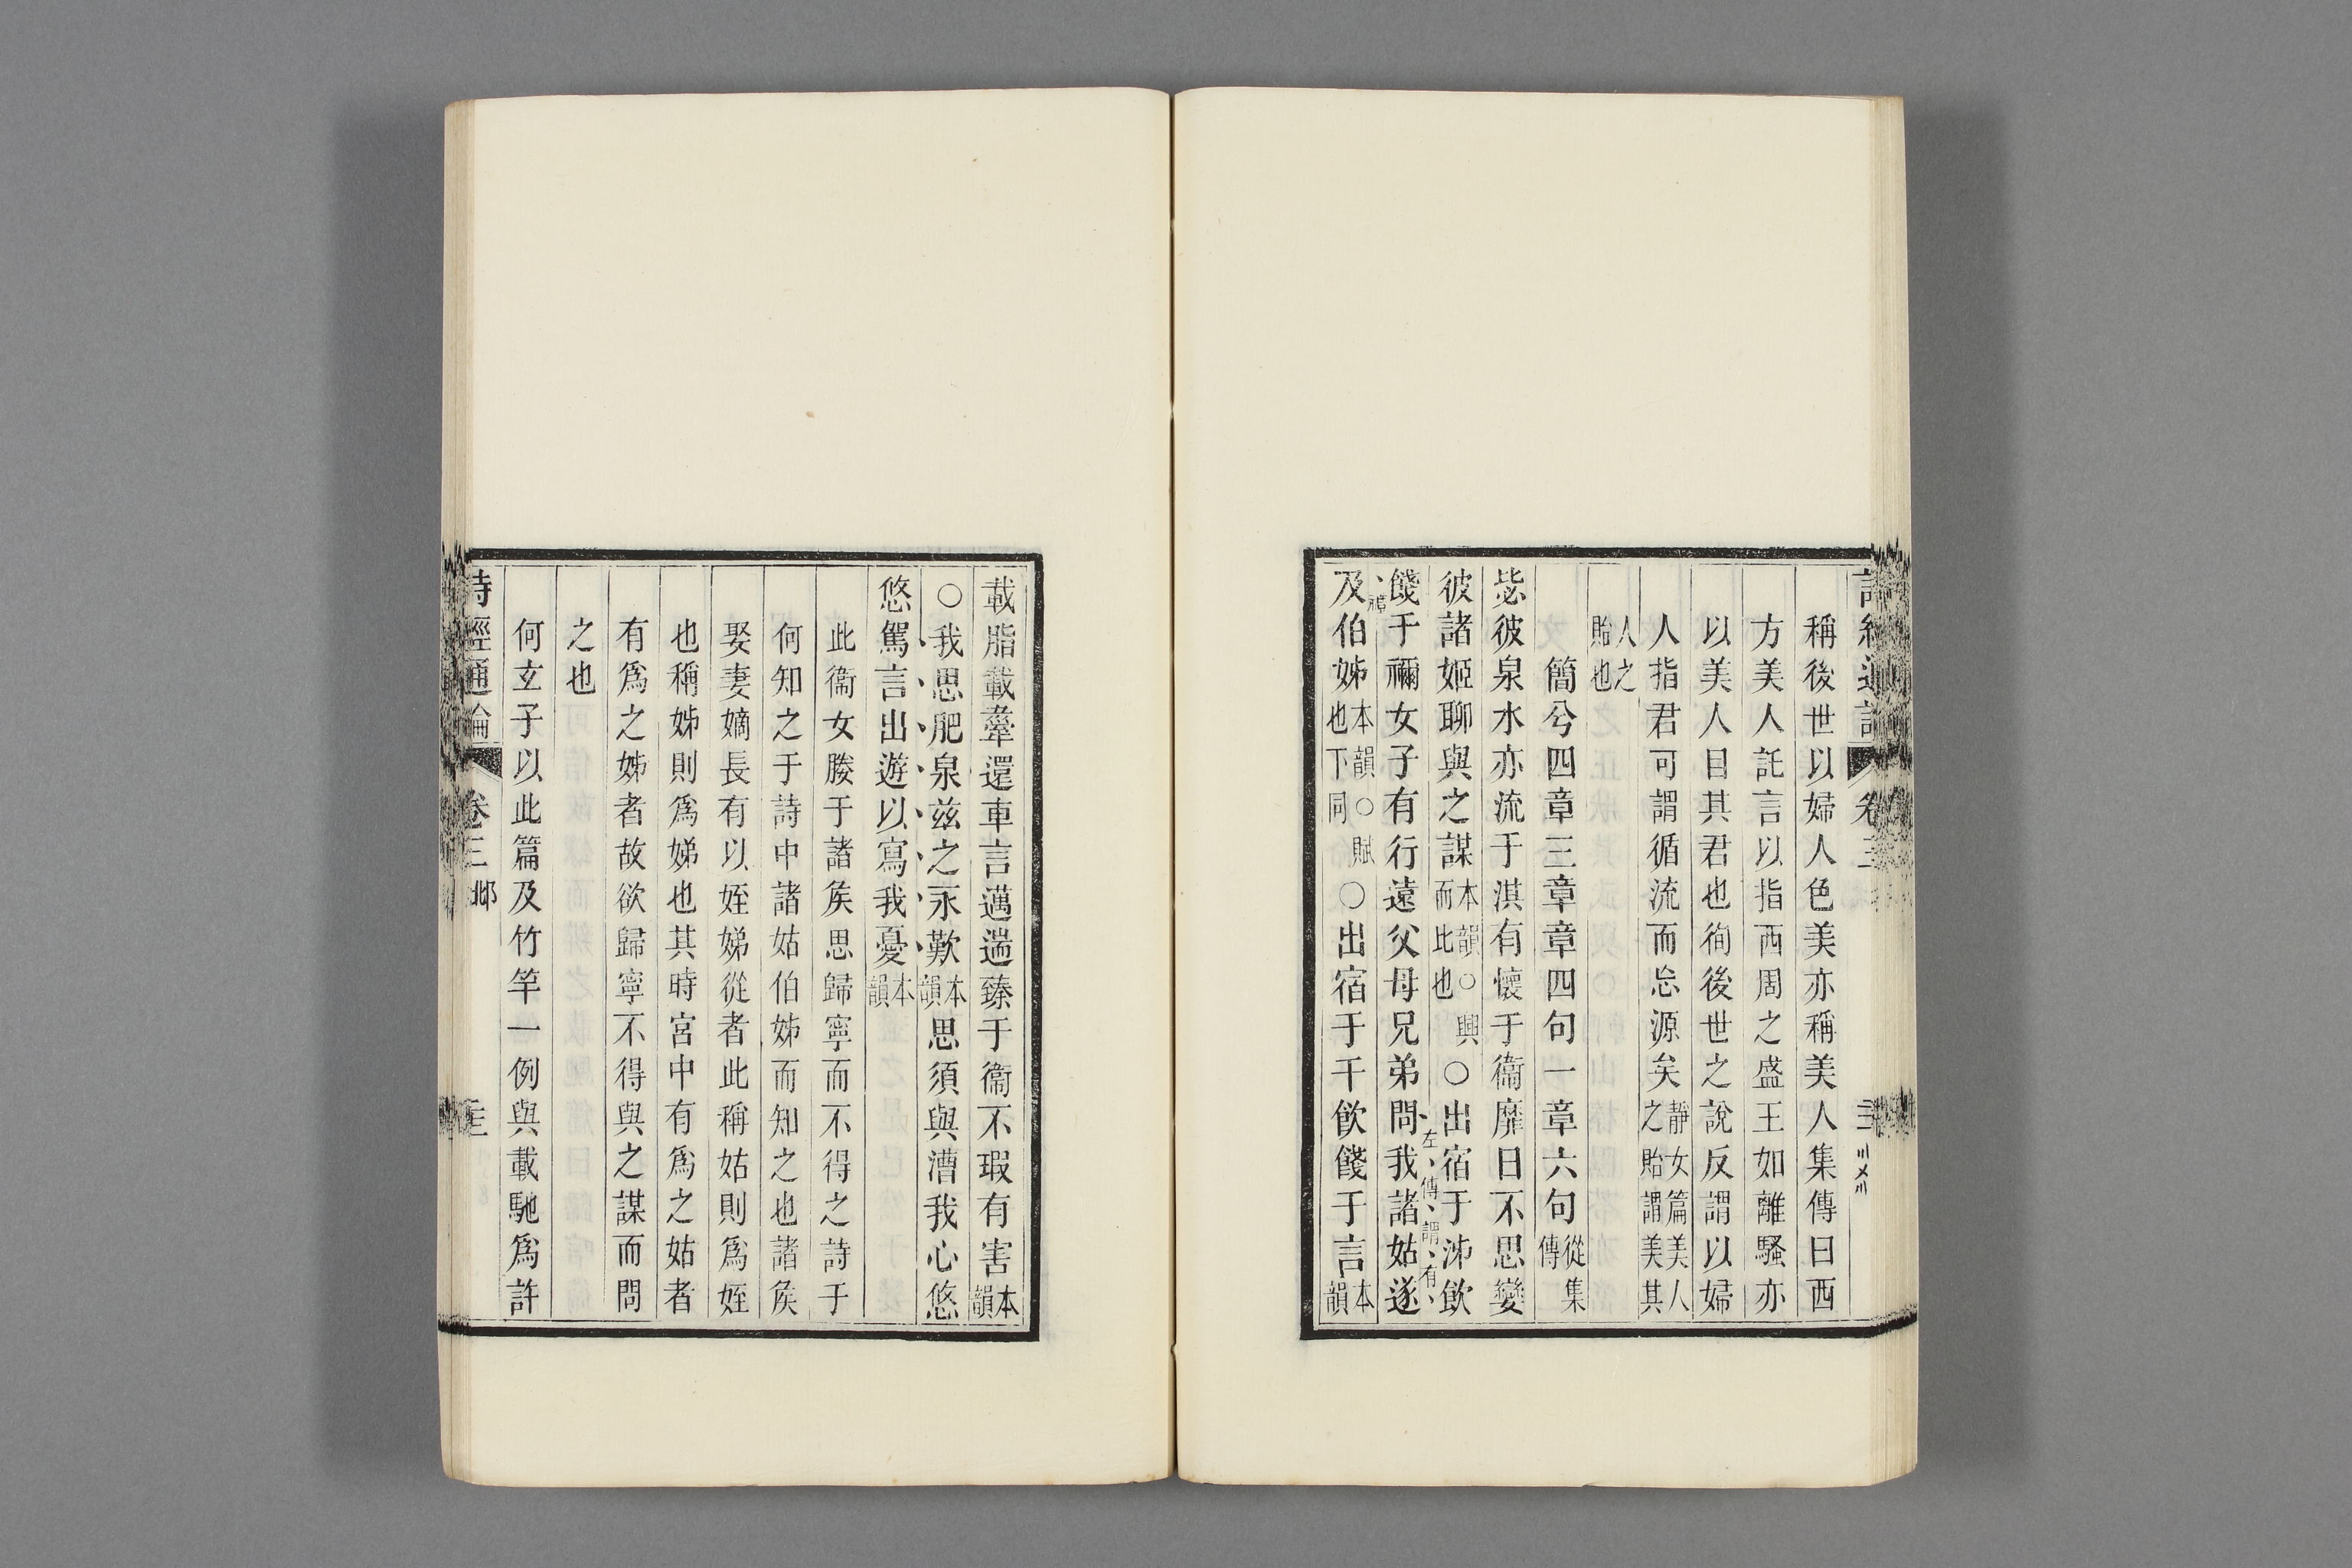 詩經通論 卷三
稱後世以婦人色美亦稱美人集傳曰西
方美人託言以指西周之盛王如離騷亦
以美人目其君也徇後世之說反謂以婦
人指君可謂循流而忘源矣靜女篇美人之貽謂美其
人之貽也
簡兮四章三章章四句一章六句從集傳
毖彼泉水亦流于淇有懷于衞靡日不思孌
彼諸姬聊與之謀本韻○興而比也○出宿于泲飲
餞于禰女子有行遠父母兄弟問我諸姑遂
左傳謂有禮
及伯姊本韻○賦也下同○出宿于干飲餞于言本韻
載脂載舝還車言邁遄臻于衞不瑕有害本韻
○我思肥泉茲之永歎本韻思須與漕我心悠
悠駕言出遊以寫我憂本韻
此衞女媵于諸矦思歸寧而不得之詩于
何知之于詩中諸姑伯姊而知之也諸矦
娶妻嫡長有以姪娣從者此稱姑則爲姪
也稱姊則爲娣也其時宮中有爲之姑者
有爲之姊者故欲歸寧不得與之謀而問
之也
何玄子以此篇及竹竿一例與載馳爲許
詩經通論 卷三 邶